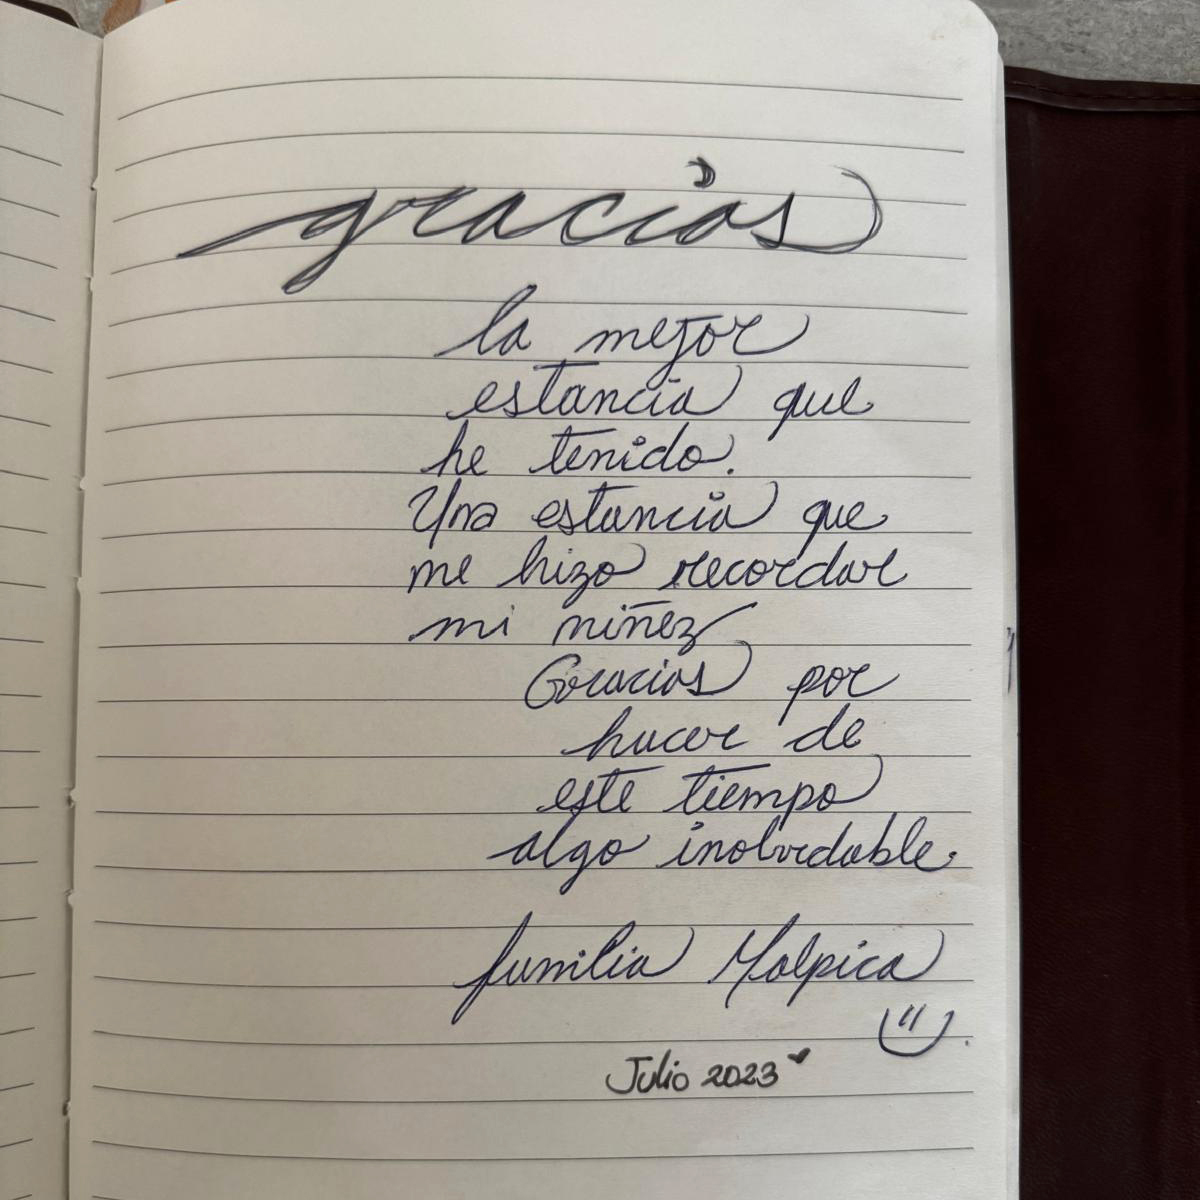 gracias
la mejor
estancia que
he tenido.
Una estancia que
me hizo recordar
mi niñez
Gracias por
hacer de
este tiempo
algo inolvidable.
familia Malpica
Julio 2023